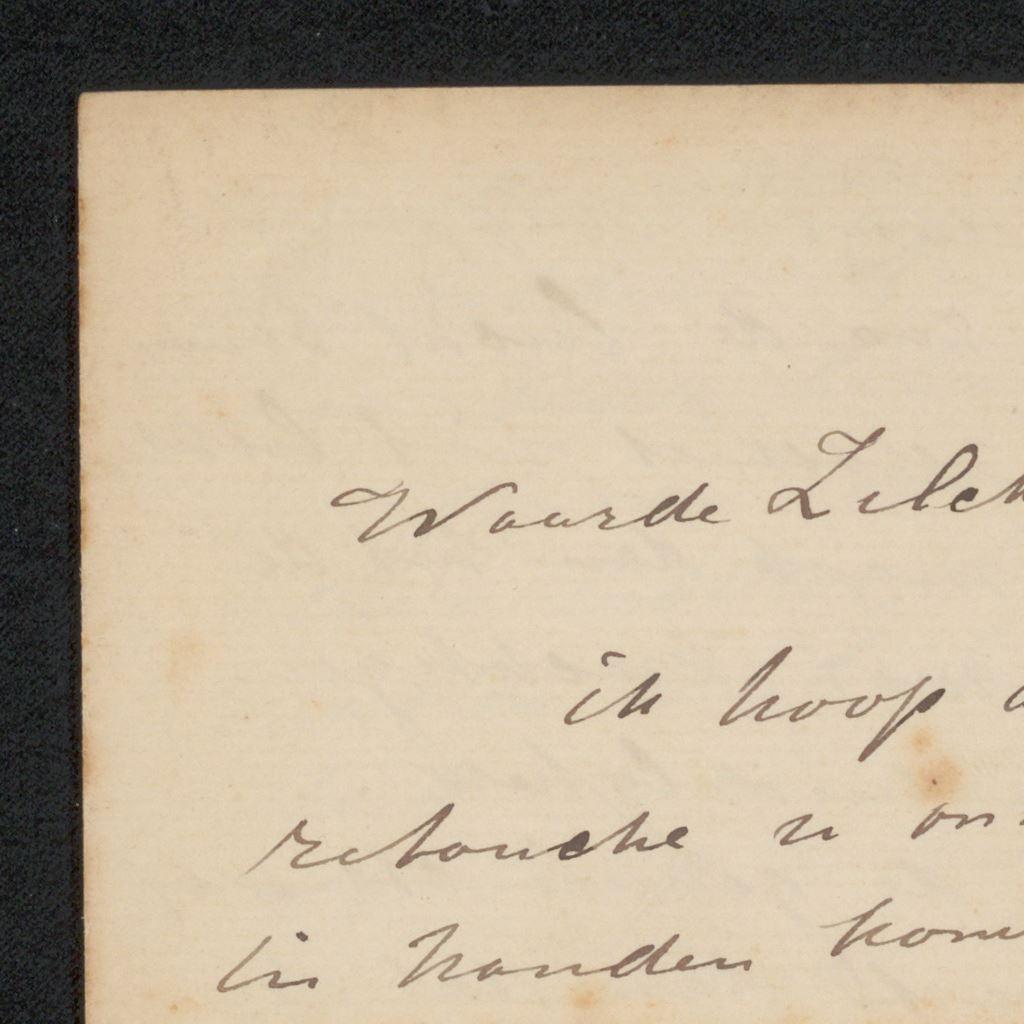 Waarde Zilck
ik hoop d
retouche u on
in handen kom